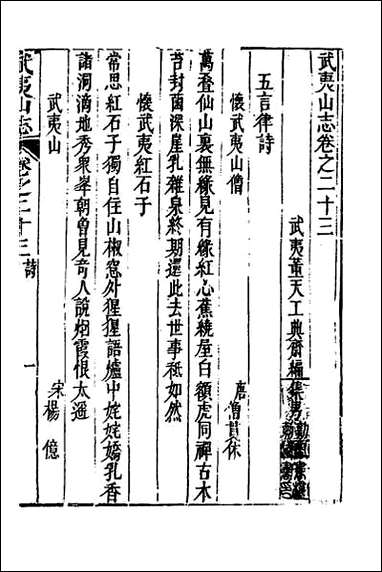 武夷山志卷之二十三
武夷董天工典齋編集男
五言律詩
懷武夷山僧 唐僧貫休
萬叠仙山裏無緣見有緣紅心蕉繞屋白額虎同禪古木
苔封菌深崖乳雜泉終期還此去世事秪如然
懷武夷紅石子
常思紅石子獨自住山椒窓外猩猩語爐中姹姹嬌乳香
諸洞滴地秀衆峯朝曾見奇人說烟霞恨太遥
武夷山 宋楊億
武夷山志 卷之二十三 詩 一